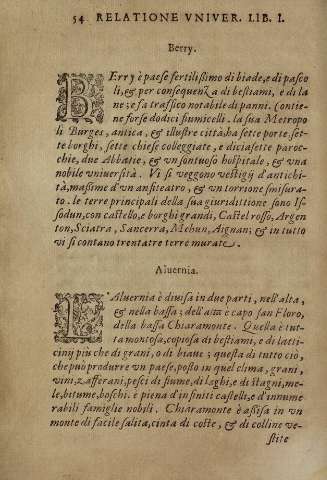 54 RELATIONE VNIVER. LIB. I.
Berry.
BErry è paese fertilissimo di biade, e di pasco
li, & per consequenza di bestiami, e di la
ne; e fa traffico notabile di panni. Contie-
ne forse dodici fiumicelli. la sua Metropo
li Burges, antica, & illustre città, ha sette porte. set-
te borghi, sette chiese collegiate, e diciasette paroc-
chie, due Abbatie, & vn sontuoso hospitale, & vna
nobile vniuersità. Vi si veggono vestigij d'antichi-
tà, massime d'vn anfiteatro, & vn torrione smisura-
to. le terre principali della sua giuridittione sono Is-
sodun, con castello, e borghi grandi, Castel rosso, Argen
ton, Sciatra, Sancerra, Mehun, Aignan; & in tutto
vi si contano trentatre terre murate.
Aluernia.
L'Aluernia è diuisa in due parti, nell'alta,
& nella bassa; dell'alta è capo san Floro,
della bassa Chiaramonte. Quella è tut-
ta montosa, copiosa di bestiami, e di latti-
cinij più che di grani, o di biaue; questa di tutto ciò,
che può produrre vn paese, posto in quel clima, grani,
vini, zafferani, pesci di fiume, di laghi, e di stagni, me-
le, bitume, boschi. è piena d'infiniti castelli, e d'innume
rabili famiglie nobili. Chiaramonte è assisa in vn
monte di facile salita, cinta di coste, & di colline ve-
stite